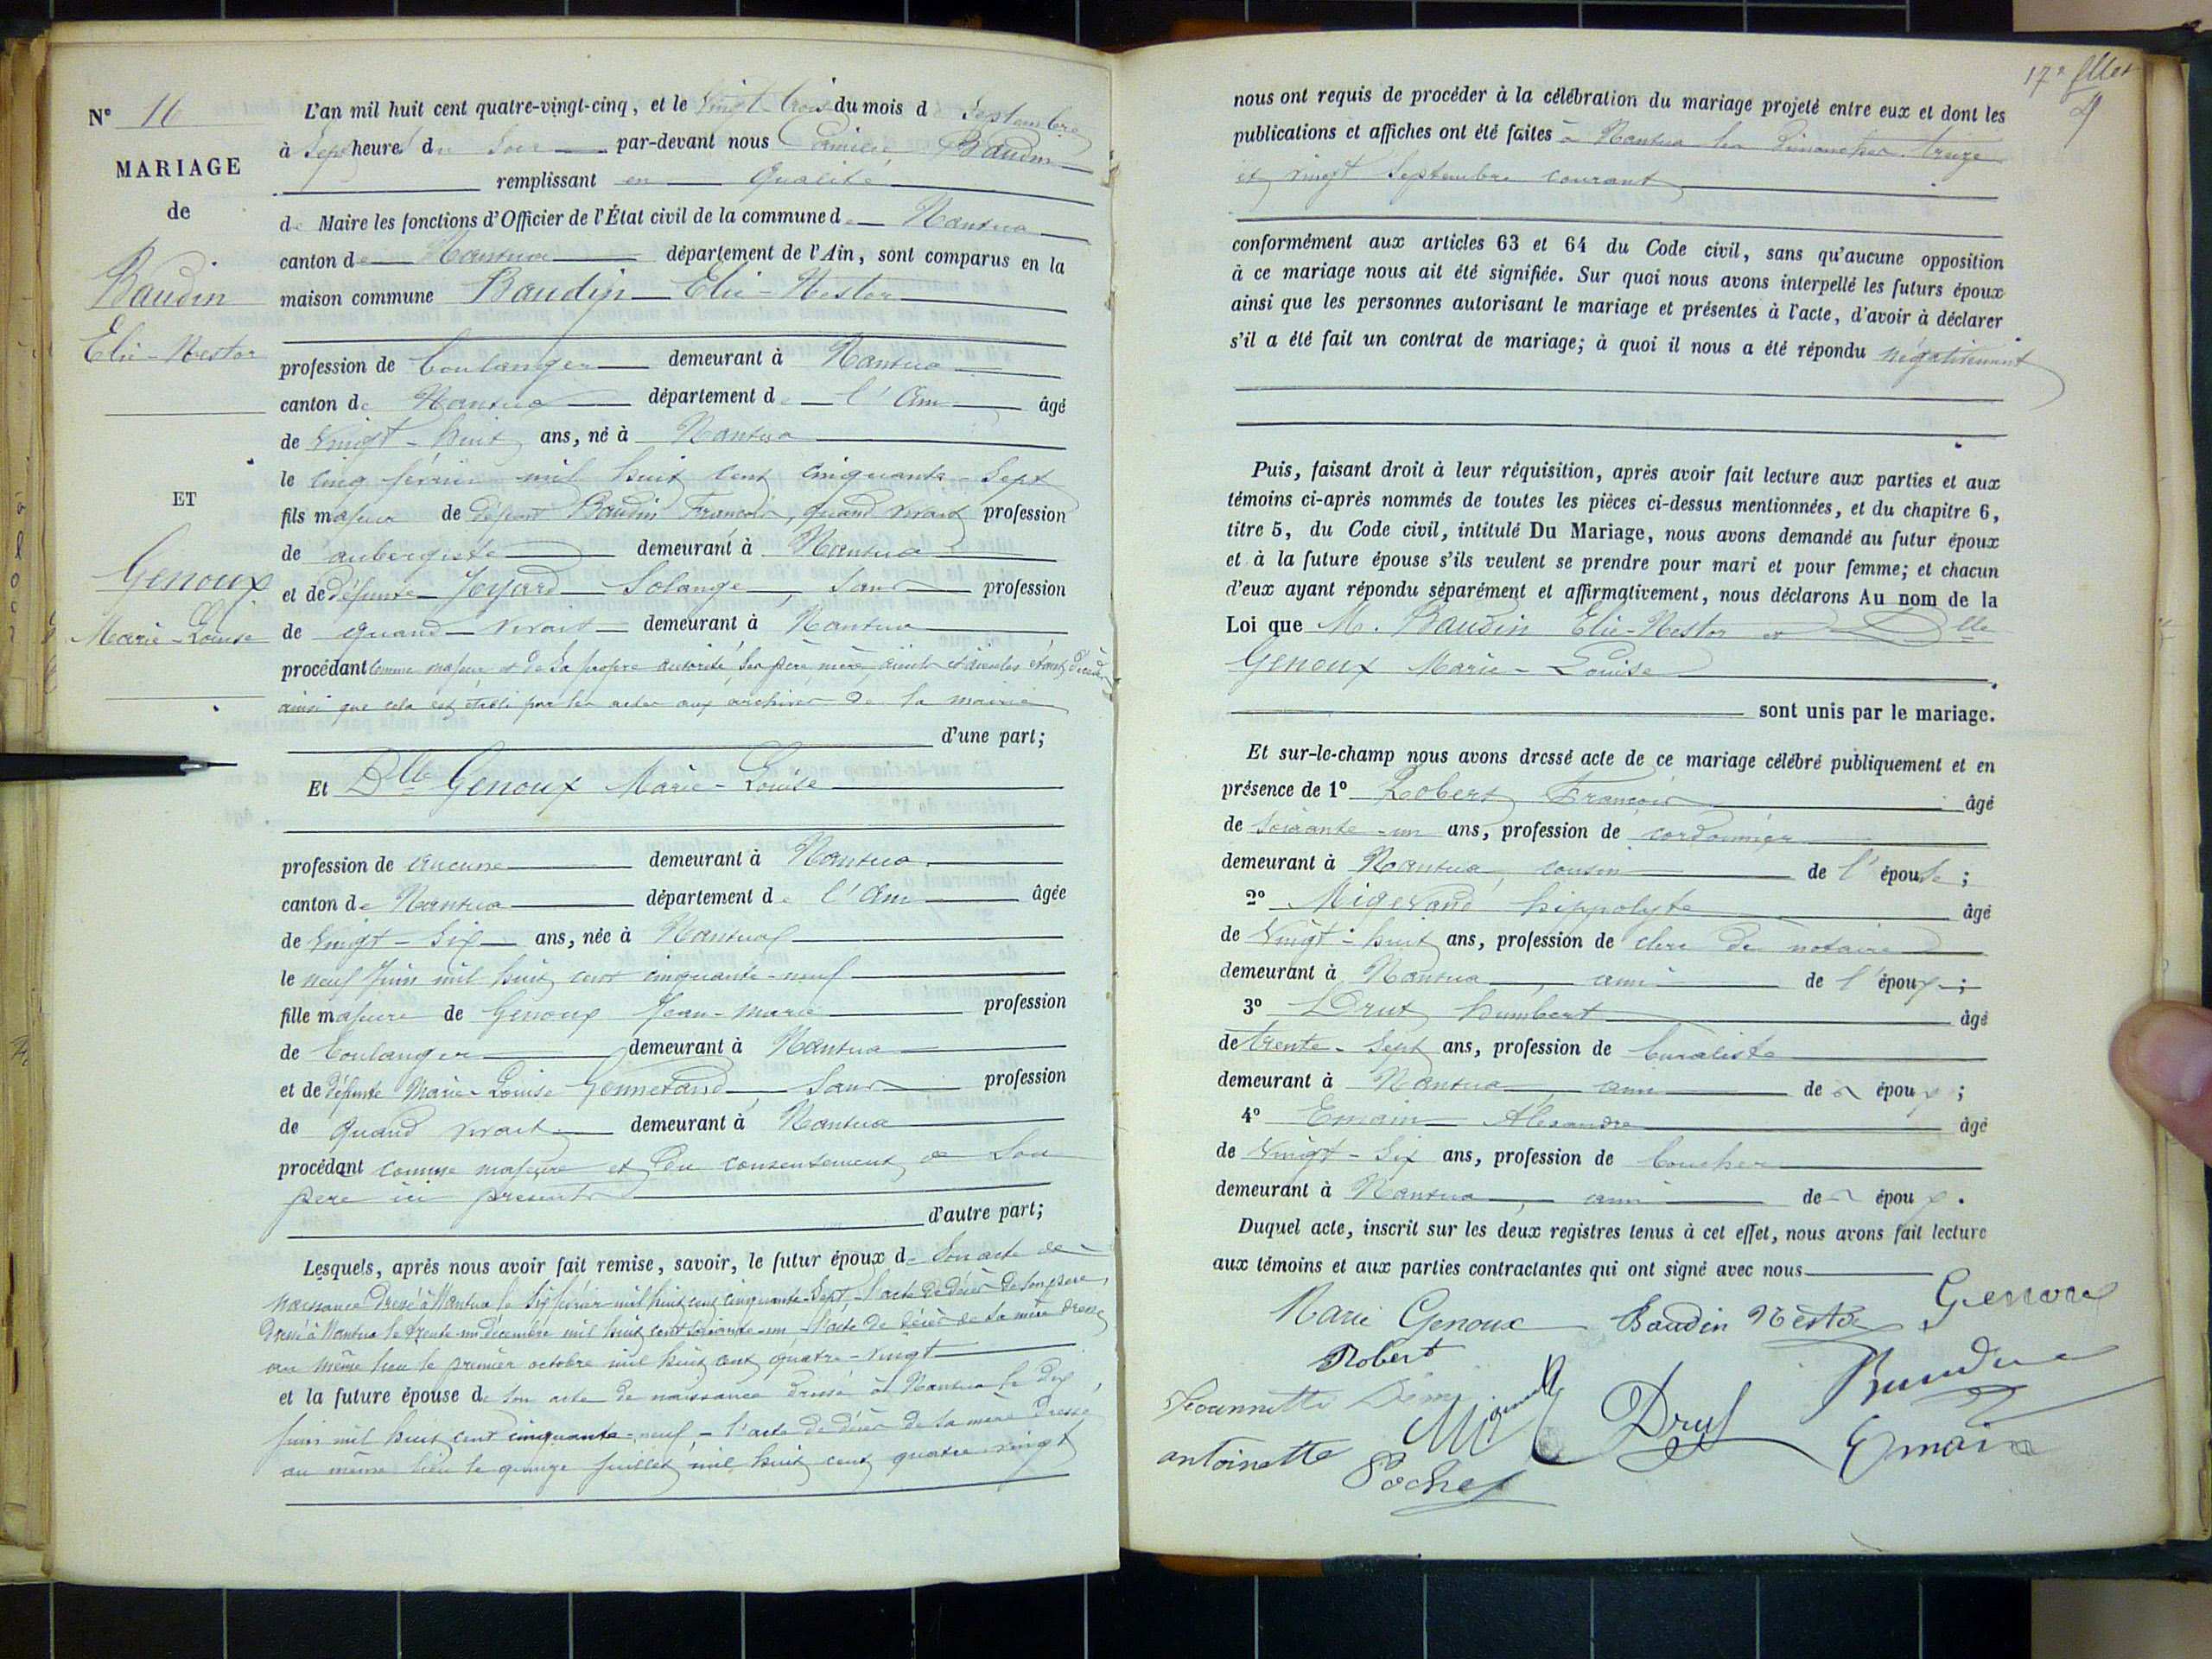 N° 16
MARIAGE
de
Baudin
Elie-Nestor
ET
Genoux
Marie-Louise
L'an mil huit cent quatre-vingt-cinq, et le vingt-trois du mois d Septembre
à Sept heures du Soir par-devant nous Camille Baudin
remplissant en qualité
de Maire les fonctions d'Officier de l'État civil de la commune de Nantua
canton de Nantua département de l'Ain, sont comparus en la
maison commune Baudin Elie-Nestor
profession de boulanger demeurant à Nantua
canton de Nantua département de l'Ain âgé
de vingt-huit ans, né à Nantua
le cinq février mil huit cent cinquante-sept
fils majeur de défunt Baudin François, quand vivait profession
de aubergiste demeurant à Nantua
et de défunte Solange, sans profession
de quand vivait demeurant à Nantua
procédant comme majeur et de sa propre autorité, ses père, mère, aïeuls et aïeules étant décédés
ainsi que cela est établi par les actes aux archives de la mairie
d'une part;
Et Dlle Genoux Marie-Louise
profession de aucune demeurant à Nantua
canton de Nantua département de l'Ain âgée
de vingt-six ans, née à Nantua
le neuf juin mil huit cent cinquante-neuf
fille majeure de Genoux Jean-Marie profession
de boulanger demeurant à Nantua
et de défunte Marie-Louise sans profession
de quand vivait demeurant à Nantua
procédant comme majeure et du consentement de son
père ici présent
d'autre part;
Lesquels, après nous avoir fait remise, savoir, le futur époux de son acte de
naissance dressé à Nantua le six février mil huit cent cinquante-sept - l'acte de décès de son père,
dressé à Nantua le trente-un décembre mil huit cent soixante-un - l'acte de décès de sa mère dressé
au même lieu le premier octobre mil huit cent quatre-vingt
et la future épouse de son acte de naissance dressé à Nantua le dix
juin mil huit cent cinquante-neuf - l'acte de décès de sa mère dressé
au même lieu le quinze juillet mil huit cent quatre-vingt
17e fllet
nous ont requis de procéder à la célébration du mariage projeté entre eux et dont les
publications et affiches ont été faites à Nantua les dimanches treize
et vingt Septembre courant
conformément aux articles 63 et 64 du Code civil, sans qu'aucune opposition
à ce mariage nous ait été signifiée. Sur quoi nous avons interpellé les futurs époux
ainsi que les personnes autorisant le mariage et présentes à l'acte, d'avoir à déclarer
s'il a été fait un contrat de mariage; à quoi il nous a été répondu négativement
Puis, faisant droit à leur réquisition, après avoir fait lecture aux parties et aux
témoins ci-après nommés de toutes les pièces ci-dessus mentionnées, et du chapitre 6,
titre 5, du Code civil, intitulé Du Mariage, nous avons demandé au futur époux
et à la future épouse s'ils veulent se prendre pour mari et pour femme; et chacun
d'eux ayant répondu séparément et affirmativement, nous déclarons Au nom de la
Loi que M. Baudin Elie-Nestor et Dlle
Genoux Marie-Louise
sont unis par le mariage.
Et sur-le-champ nous avons dressé acte de ce mariage célébré publiquement et en
présence de 1° Robert François âgé
de soixante-un ans, profession de cordonnier
demeurant à Nantua, cousin de l'épouse;
2° Migerand hippolyte âgé
de vingt-huit ans, profession de clerc de notaire
demeurant à Nantua, ami de l'époux;
3° Drut humbert âgé
de trente-sept ans, profession de buraliste
demeurant à Nantua, ami de époux;
4° Emain Alexandre âgé
de vingt-six ans, profession de boucher
demeurant à Nantua, ami de époux.
Duquel acte, inscrit sur les deux registres tenus à cet effet, nous avons fait lecture
aux témoins et aux parties contractantes qui ont signé avec nous
Marie Genoux Baudin Nestor Genoux
Robert
Jeannette
Drut Emain
antoinette Pochex